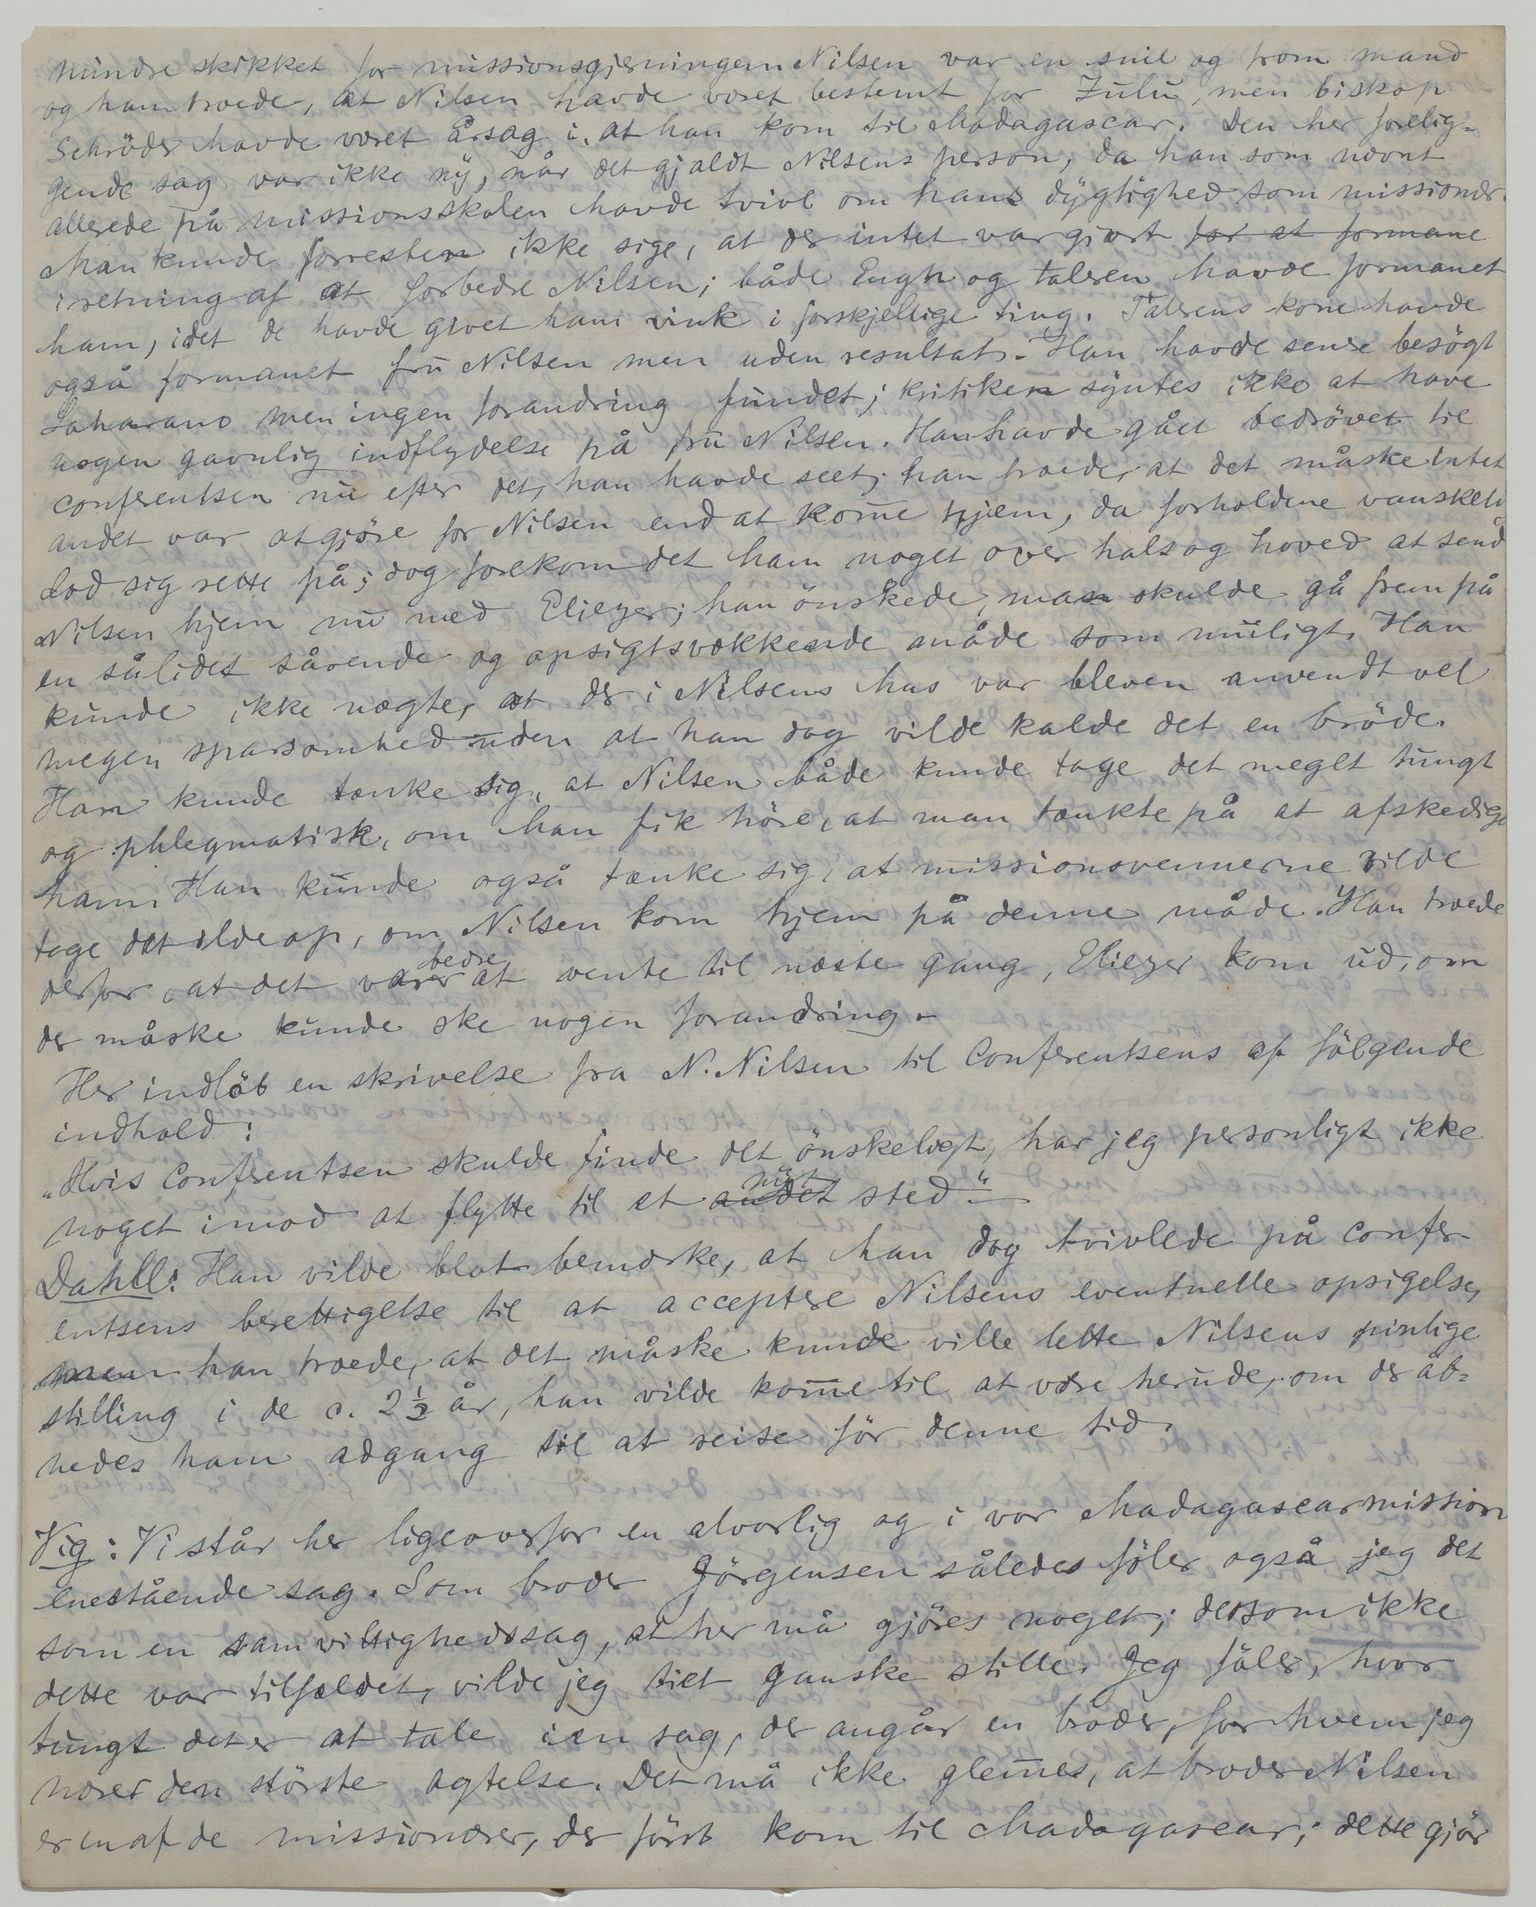 mindre skikket for missionsgjerningen. Nilsen var en snil og from mand
og han troede, at Nilsen havde været bestemt for Zulu, men biskop
Schröder havde været årsag i, at han kom til Madagascar. Den her forelig-
gende sag var ikke ny, når det gjaldt Nilsens person, da han som nævnt
allerede på missionsskolen havde tvivl om hans dygtighed som missionær.
Man kunde forresten ikke sige, at der intet var gjort for at formane
i retning af at forbedre Nilsen; både Engh og taleren havde formanet
ham, idet de havde givet ham vink i forskjellige ting. Talerens kone havde
også formanet fru Nilsen men uden resultat. Han havde senere besögt
Loharano men ingen forandring fundet; kritiken syntes ikke at have
nogen gavnlig indflydelse på fru Nilsen. Han havde gået bedrövet til
conferentsen nu efter det, han havde seet; han troede, at det måske intet
andet var at gjöre for Nilsen end at kom̅e hjem, da forholdene vanskeli
lod sig rette på; dog forekom det ham noget over hals og hoved at send
Nilsen hjem nu med Eliezer; han önskede, man skulde gå frem på
en så lidet sårende og opsigtsvækkende måde som muligt. Han
kunde ikke nægte, at der i Nilsens hus var bleven anvendt vel
megen sparsomhed uden at han dog vilde kalde det en bröde.
Han kunde tænke sig, at Nilsen både kunde tage det meget tungt
og phlegmatisk, om han fik höre, at man tænkte på at afskedige
ham. Han kunde også tænke sig, at missionsvennerne vilde
tage det ilde op, om Nilsen kom hjem på denne måde. Han troede
derfor, at det var bedre at vente til næste gang, Eliezer kom ud, om
der måske kunde ske nogen forandring.
Her indlöb en skrivelse fra N. Nilsen til Conferentsens af fölgende
indhold:
„Hvis Conferentsen skulde finde det önskeligt, har jeg personligt ikke
noget imod at flytte til et andet nyt sted"
Dahll: Han vilde blot bemærke, at han dog tvivlede på Confer-
entsens berettigelse til at acceptere Nilsens eventuelle opsigelse,
men han troede, at det måske kunde ville lette Nilsens pinlige
stilling i de c. 2½ år, han vilde kom̅e til at være herude, om der åb-
nedes ham adgang til at reise för denne tid.
Vig: Vi står her ligeoverfor en alvorlig og i vor Madagascarmission
enestående sag. Som broder Jörgensen således föler også jeg det
som en samvittighedssag, at her må gjöres noget; dersom ikke
dette var tilfældet, vilde jeg tiet ganske stille. Jeg föler, hvor
tungt det er at tale i en sag, der angår en broder, for hvem jeg
nærer den störste agtelse. Det må ikke glem̅es, at broder Nilsen
er en af de missionærer, der först kom til Madagascar; dette gjör